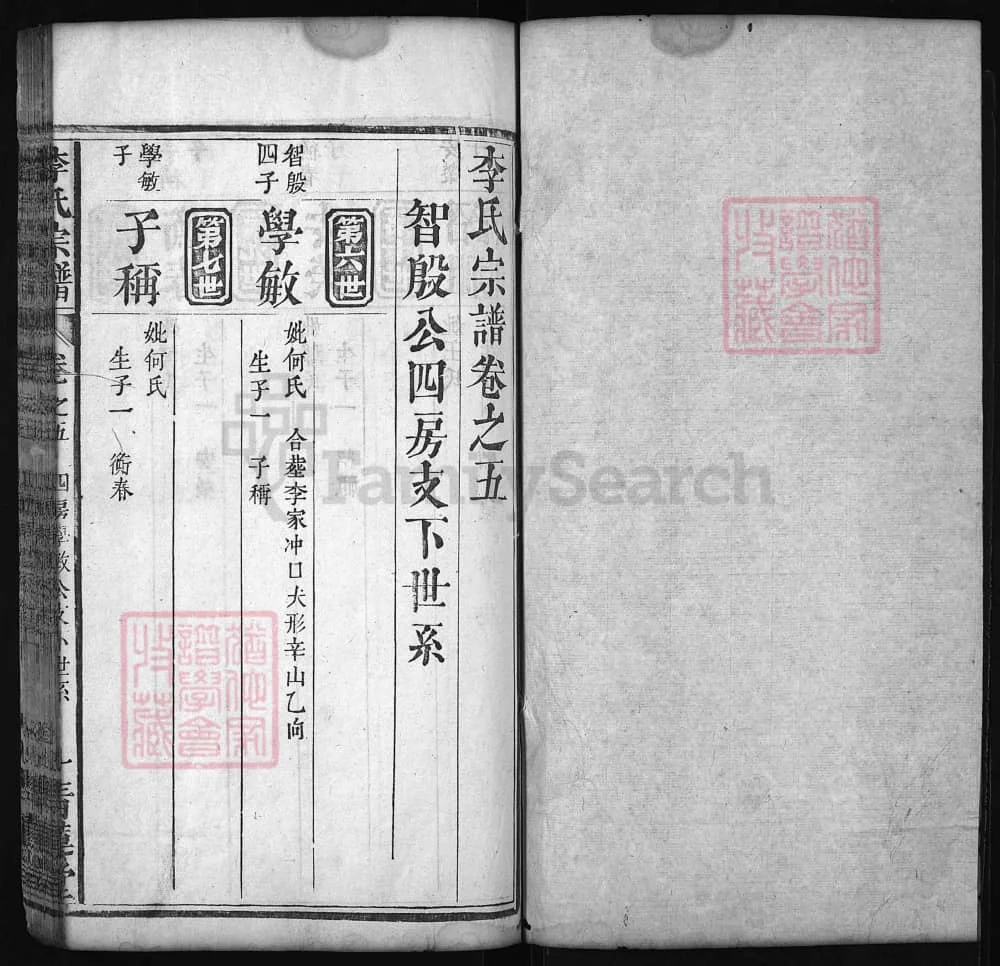 李氏宗譜卷之五
智殷公四房支下世系
第六世
智殷
四子
學敏
妣何氏 合塟李家冲口犬形辛山乙向
生子一 子稱
第七世
學敏
子
子稱
妣何氏
生子一 衡春
李氏宗譜
卷之五
FamilySearch